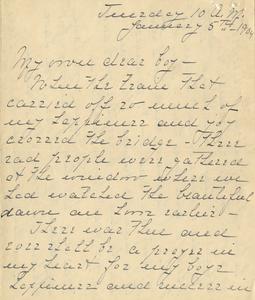 Tuesday 10 A.M.
January 5th - 190
My own dear boy -
When the train that
carried off so much of
my happiness and joy
crossed the bridge - three
sad people were gathered
at the window where we
had watched the beautiful
dawn an hour earlier -
There was then and
ever shall be a prayer in
my heart for my boys
happiness and success in